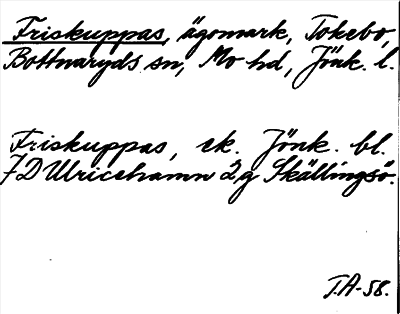 Friskuppas, ägomark, Tokebo,
Bottnaryds sn, Mo hd, Jönk. l.
Friskuppas, ek. Jönk. bl.
7D Ulricehamn 2g Skällingsö.
T.A-58.